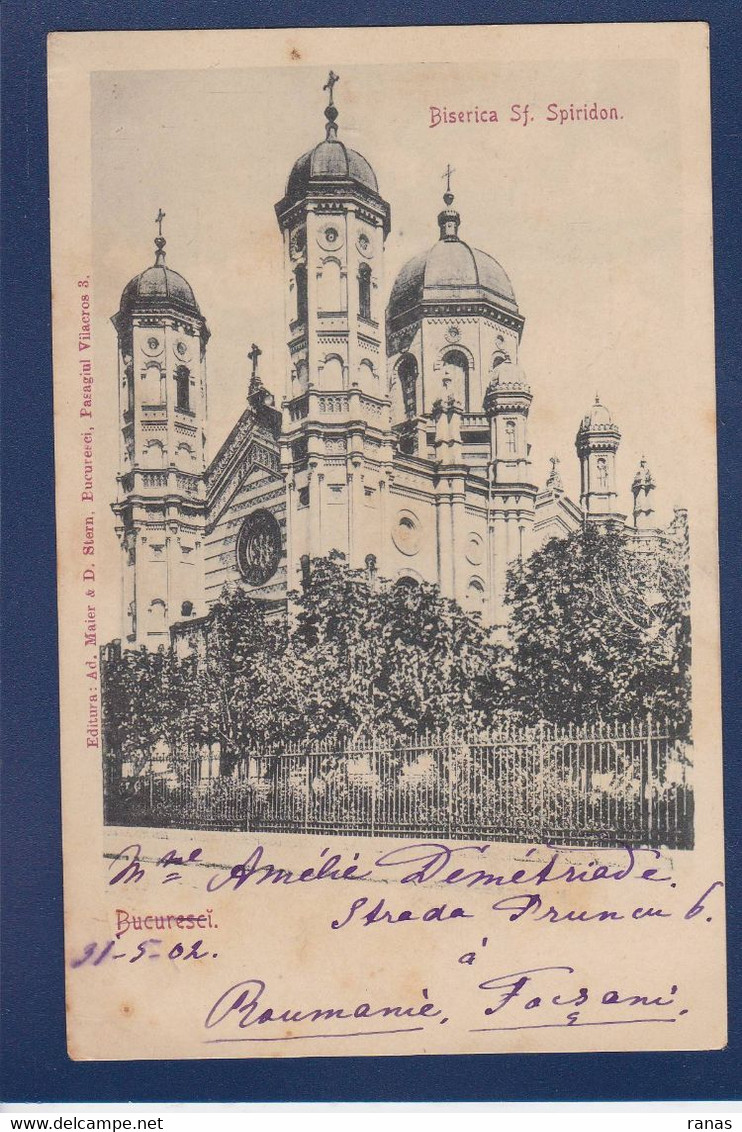 Biserica Sf. Spiridon.
Editura: Ad. Maier & D. Stern, Bucuresci, Pasagiul Vilacros 3.
Mme Amélie Démétriade.
Bucurescĭ.
Strada Pruncu 6.
31-5-02.
à
Roumanie, Focşani
ranas